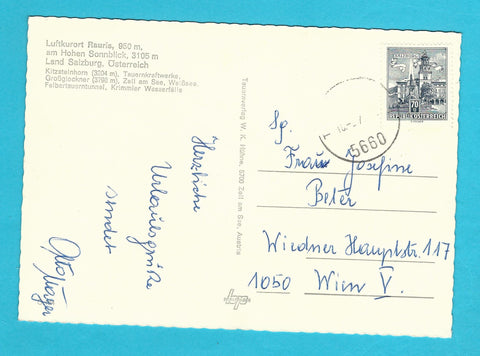 Luftkurort Rauris, 950 m,
am Hohen Sonnblick, 3105 m
Land Salzburg, Österreich
Kitzsteinhorn (3204 m), Tauernkraftwerke,
Großglockner (3798 m), Zell am See, Weißsee,
Felbertauerntunnel, Krimmler Wasserfälle
Herzliche
Urlaubsgrüße
sendet
Tauernverlag W. K. Hühne, 5700 Zell am See, Austria
70
REPUBLIK ÖSTERREICH
5660
Sp.
Frau Josefine
Beter
Wiedner Hauptstr. 117
1050 Wien V.